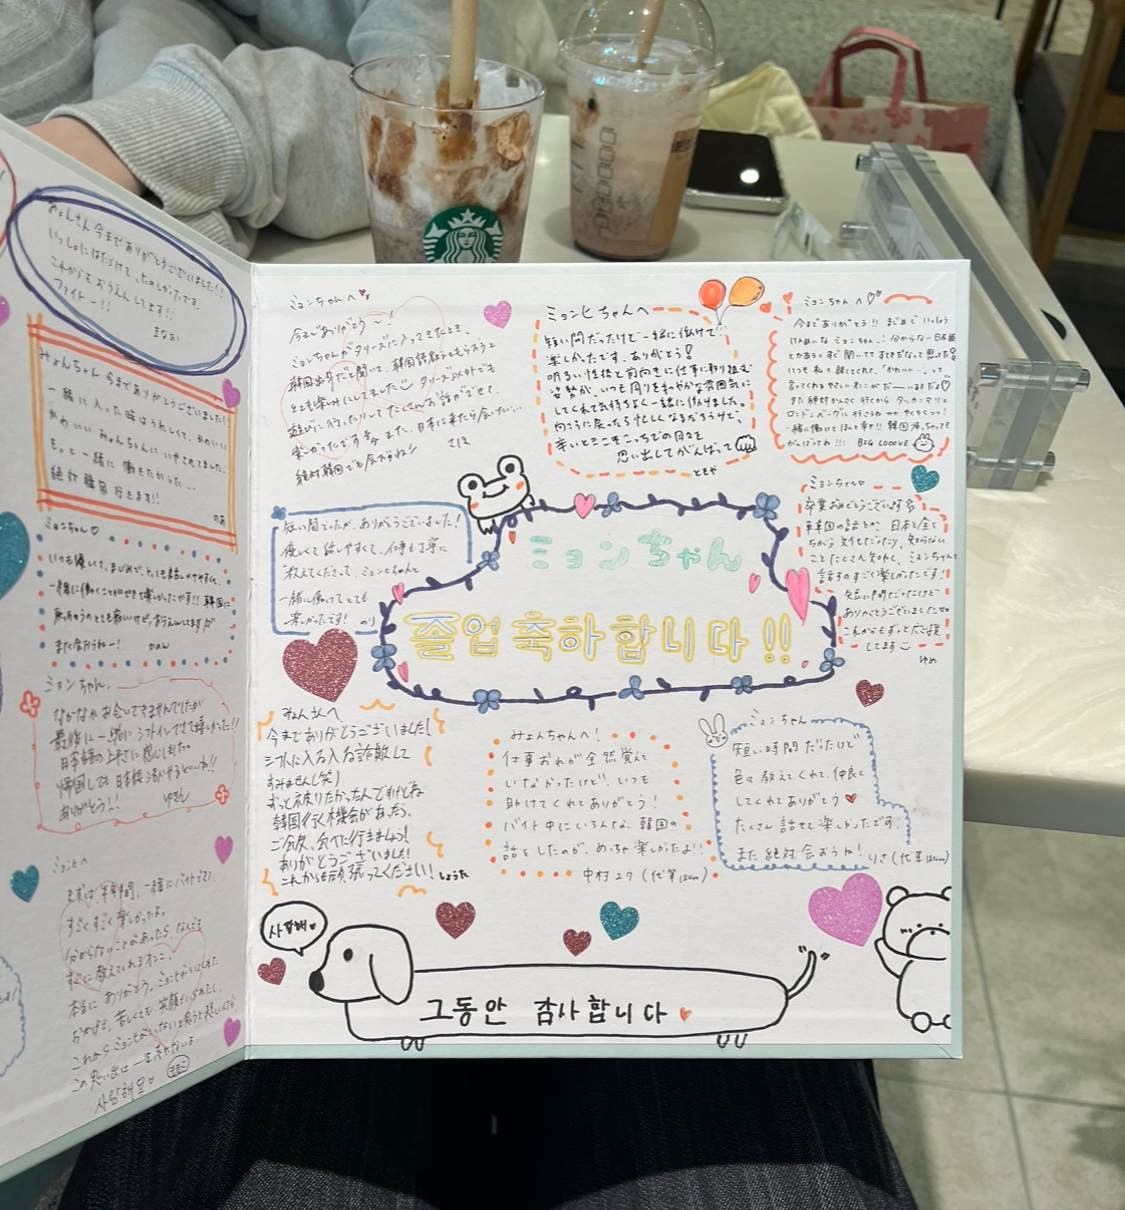 みょんさん今までありがとうございました!!
いっしょにはたらけて、たのしかったです。
これからもおうえんしてます!!
ファイトー!!
まなお
みょんちゃん 今までありがとうございました!
一緒に入った時はうれしくて、かわいい
かわいい みょんちゃんに いやされました。
もっと一緒に 働きたかった…
絶対韓国行きます!!
のあ
ミョンちゃん♡
いつも優しくて、まじめで、とっても話しかけやすくて、
一緒に働くことができて楽しかったです!! 韓国に
また会おうねー! かのん
ミョンちゃん。
なかなかお会いできませんでしたが
最後に一緒にシフトインできて嬉しかった!!
日本語の上手さに感じました
ありがとう!!
ミョンヒへ
まずは、半年間、一緒にバイトできて、
すごくすごく楽しかったよ。
分からないことがあったら、なんでも
すぐに教えてくれるオンニ。
本当に ありがとう。
사랑해요
ミョンちゃんへ
今までありがとう〜!
ミョンちゃんがタリーズに入ってきたとき、
韓国出身だと聞いて、韓国語教えてもらおうと
とても楽しみにしてました タリーズ以外でも
遊びに行ったりしてたくさんお話ができて、
楽しかったです また、日本に来たら会いたい…
絶対韓国でも会おうね!! さき
ミョンヒちゃんへ
短い間だったけど一緒に働けて
楽しかったです。ありがとう!
明るい性格と前向きに仕事に取り組む
姿勢が、いつも周りを和やかな雰囲気に
してくれて気持ちよく一緒に働けました。
向こうに戻ったら忙しくなるだろうけど、
辛いときこそこっちでの日々を
思い出してがんばって
ともや
ミョンちゃんへ♡
今までありがとう!! まじめで いっしょう
けんめいな ミョンちゃん、分からない日本語
とかあるとすぐ聞いててすてきだなって思った!
いつも私と話してくれて、「かわいい…」って
言ってくれるやさしいオンニがだーいすきだよ♡
また絶対かんこく行くから タッカンマリと
ロンドンベーグル行こうね やくそくっ!
一緒に働いてほんと幸せ!! 韓国帰っちゃっても
がんばってね!!! BIG LOOOVE
短い間でしたが、ありがとうございました!
優しくて話しやすくて、仕事も丁寧に
教えてくださって、ミョンヒちゃんと
一緒に働けてとても
楽しかったです! のり
ミョンちゃん
졸업 축하합니다!!
ミョンちゃん♡
卒業おめでとうございます
韓国の話とか、日本と全く
ちがう文化だったり、知らない
ことたくさん知れて、ミョンちゃんと
話すのすごく楽しかったです!
短い間だったけど
ありがとうございました
これからもずっと応援
してます
ゆめ
みょんさんへ
今までありがとうございました!
シフトに入る入る詐欺して
すみません(笑)
ずっと被りたかったんですけどね
韓国行く機会があったら、
ご飯、食べに行きましょう!
ありがとうございました!
これからも頑張ってください! しょうた
みょんちゃんへ!
仕事おれが全然覚えて
いなかったけど、いつも
助けてくれてありがとう!
バイト中にいろんな、韓国の
話をしたのが、めっちゃ楽しかったよ!!
中村 ユウ (代筆はな)
ミョンちゃん
短い時間だったけど
色々教えてくれて、仲良く
してくれてありがとう
たくさん話せて楽しかったです!
また絶対会おうね! りさ(代筆はな)
사랑해
그동안 감사합니다